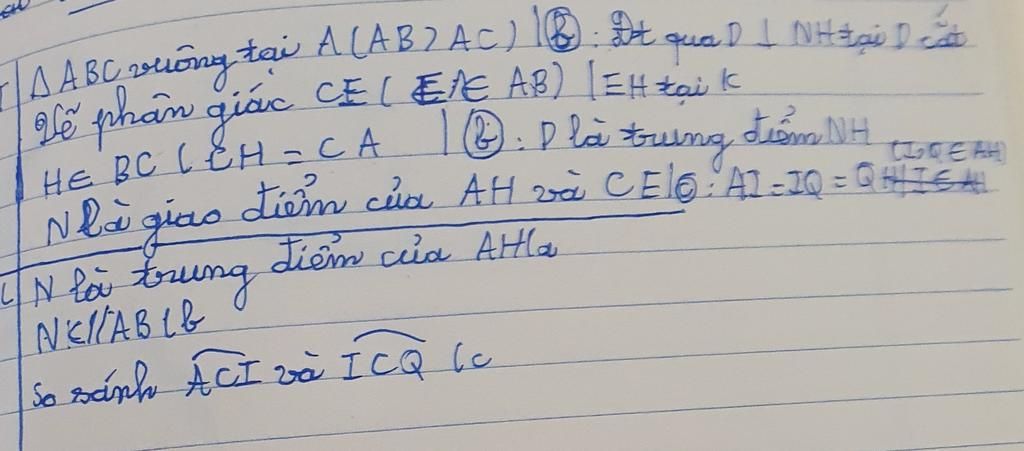 ΔABC vuông tại A(AB>AC) | b: Đt qua D ⊥ NH tại D cắt
Vẽ phân giác CE (E ∈ AB) | EH tại K
H ∈ BC (CH = CA | b: D là trung điểm NH
(I,Q ∈ AH)
N là giao điểm của AH và CE | c: AI = IQ = QH
N là trung điểm của AH(a
NK//AB (b
So sánh ACI và ICQ (c